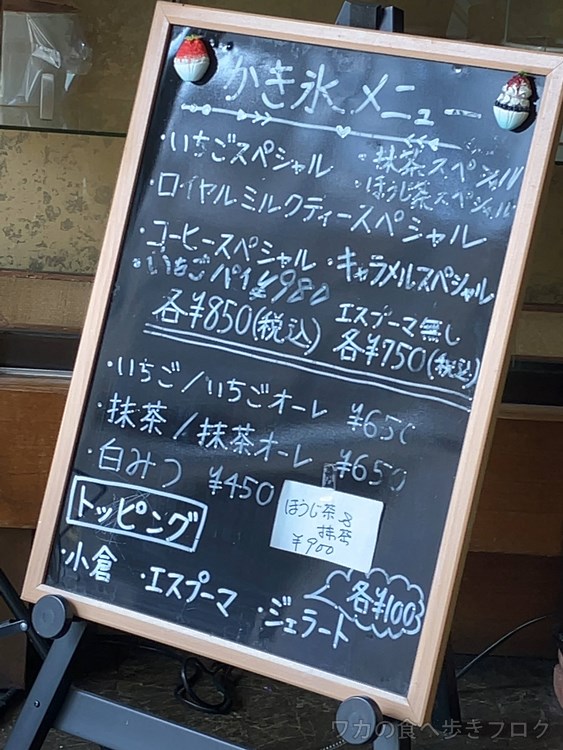 かき氷メニュー
・いちごスペシャル ・抹茶スペシャル
・ほうじ茶スペシャル
・ロイヤルミルクティースペシャル
・コーヒースペシャル ・キャラメルスペシャル
・いちごパイ ¥980
各¥850(税込) エスプーマ無し
各¥750(税込)
・いちご/いちごオーレ ¥650
・抹茶/抹茶オーレ ¥650
・白みつ ¥450
ほうじ茶&
抹茶
¥900
トッピング
・小倉 ・エスプーマ ・ジェラート
各¥100
ワカの食べ歩きブログ